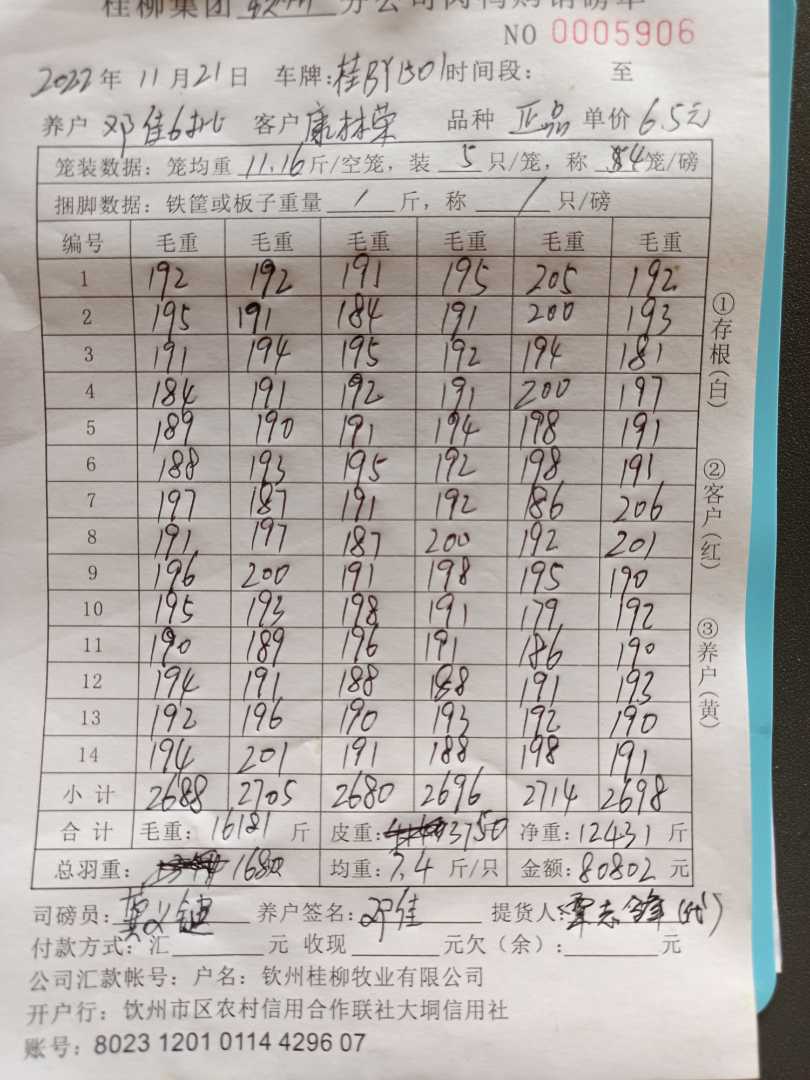 桂柳集团 钦州 分公司肉鸭购销磅单
NO 0005906
2022年 11月21日 车牌: 时间段: 至
养户 邓佳6批 客户 康林荣 品种 正品 单价 6.5元
笼装数据: 笼均重 11.16 斤/空笼, 装 5 只/笼, 称 4笼/磅
捆脚数据: 铁筐或板子重量 / 斤, 称 / 只/磅
编号 毛重 毛重 毛重 毛重 毛重 毛重
1 192 192 191 195 205 192
2 195 191 184 191 200 193
3 191 194 195 192 194 181
4 184 191 192 191 200 197
5 189 190 191 194 198 191
6 188 193 195 192 198 191
7 197 187 191 192 186 206
8 191 197 187 200 192 201
9 196 200 191 198 195 190
10 195 193 198 191 179 192
11 190 189 196 191 186 190
12 194 191 188 188 191 193
13 192 196 190 193 192 190
14 194 201 191 188 198 191
小计 2688 2705 2680 2696 2714 2698
合计 毛重: 16181 斤 皮重: 3750 净重: 12431 斤
总羽重: 1680 均重: 7.4 斤/只 金额: 80802 元
司磅员: 养户签名: 邓佳 提货人: 覃志锋(代)
付款方式: 汇 元 收现 元欠(余): 元
公司汇款帐号: 户名: 钦州桂柳牧业有限公司
开户行: 钦州市区农村信用合作联社大垌信用社
账号: 8023 1201 0114 4296 07
①存根(白)
②客户(红)
③养户(黄)